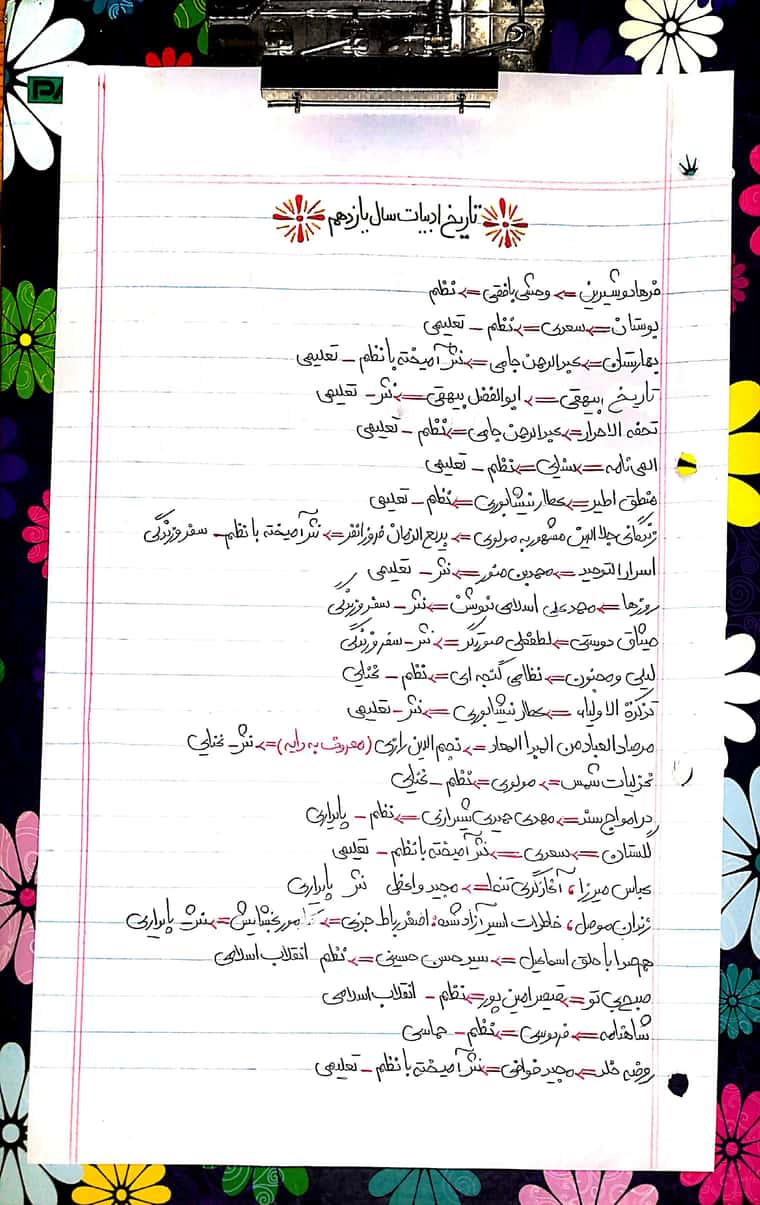 تاریخ ادبیات سال یازدهم
فرهاد و شیرین => وحشی بافقی => نظم
بوستان => سعدی => نظم – تعلیمی
بهارستان => عبدالرحمن جامی => نثر آمیخته با نظم – تعلیمی
تاریخ بیهقی => ابوالفضل بیهقی => نثر – تعلیمی
تحفه الاحرار => عبدالرحمن جامی => نظم – تعلیمی
الهی نامه => سنایی => نظم – تعلیمی
منطق اطیر => عطار نیشابوری => نظم – تعلیمی
زندگانی جلا الدین مشهور به مولوی => بدیع الزمان فروزانفر => نثر آمیخته با نظم – سفر و زندگی
اسرار التوحید => محمدبن منور => نثر – تعلیمی
روزها => محمدعلی اسلامی ندوشن => نثر – سفر و زندگی
میثاق دوستی => لطفعلی صورتگر => نثر – سفر و زندگی
لیلی و مجنون => نظامی گنجه ای => نظم – غنایی
تذکرة الاولیاء => عطار نیشابوری => نثر – تعلیمی
مرصاد العباد من المبدا المعاد => نجم الدین رازی (معروف به دایه) => نثر – غنایی
غزلیات شمس => مولوی => نظم – غنایی
در امواج سند => مهدی حمیدی شیرازی => نظم – پایداری
گلستان => سعدی => نثر آمیخته با نظم – تعلیمی
عباس میرزا، آغازگری تنها => مجید واعظی نثر پایداری
زندان موصل، خاطرات اسیر آزاد شده؛ اصغر رباط جزی => کامور بخشایش => نثر – پایداری
همصدا با حلق اسماعیل => سید حسن حسینی => نظم انقلاب اسلامی
صبح بی تو => قیصر امین پور => نظم – انقلاب اسلامی
شاهنامه => فردوسی => نظم – حماسی
روضه خلد => مجید خوافی => نثر آمیخته با نظم – تعلیمی